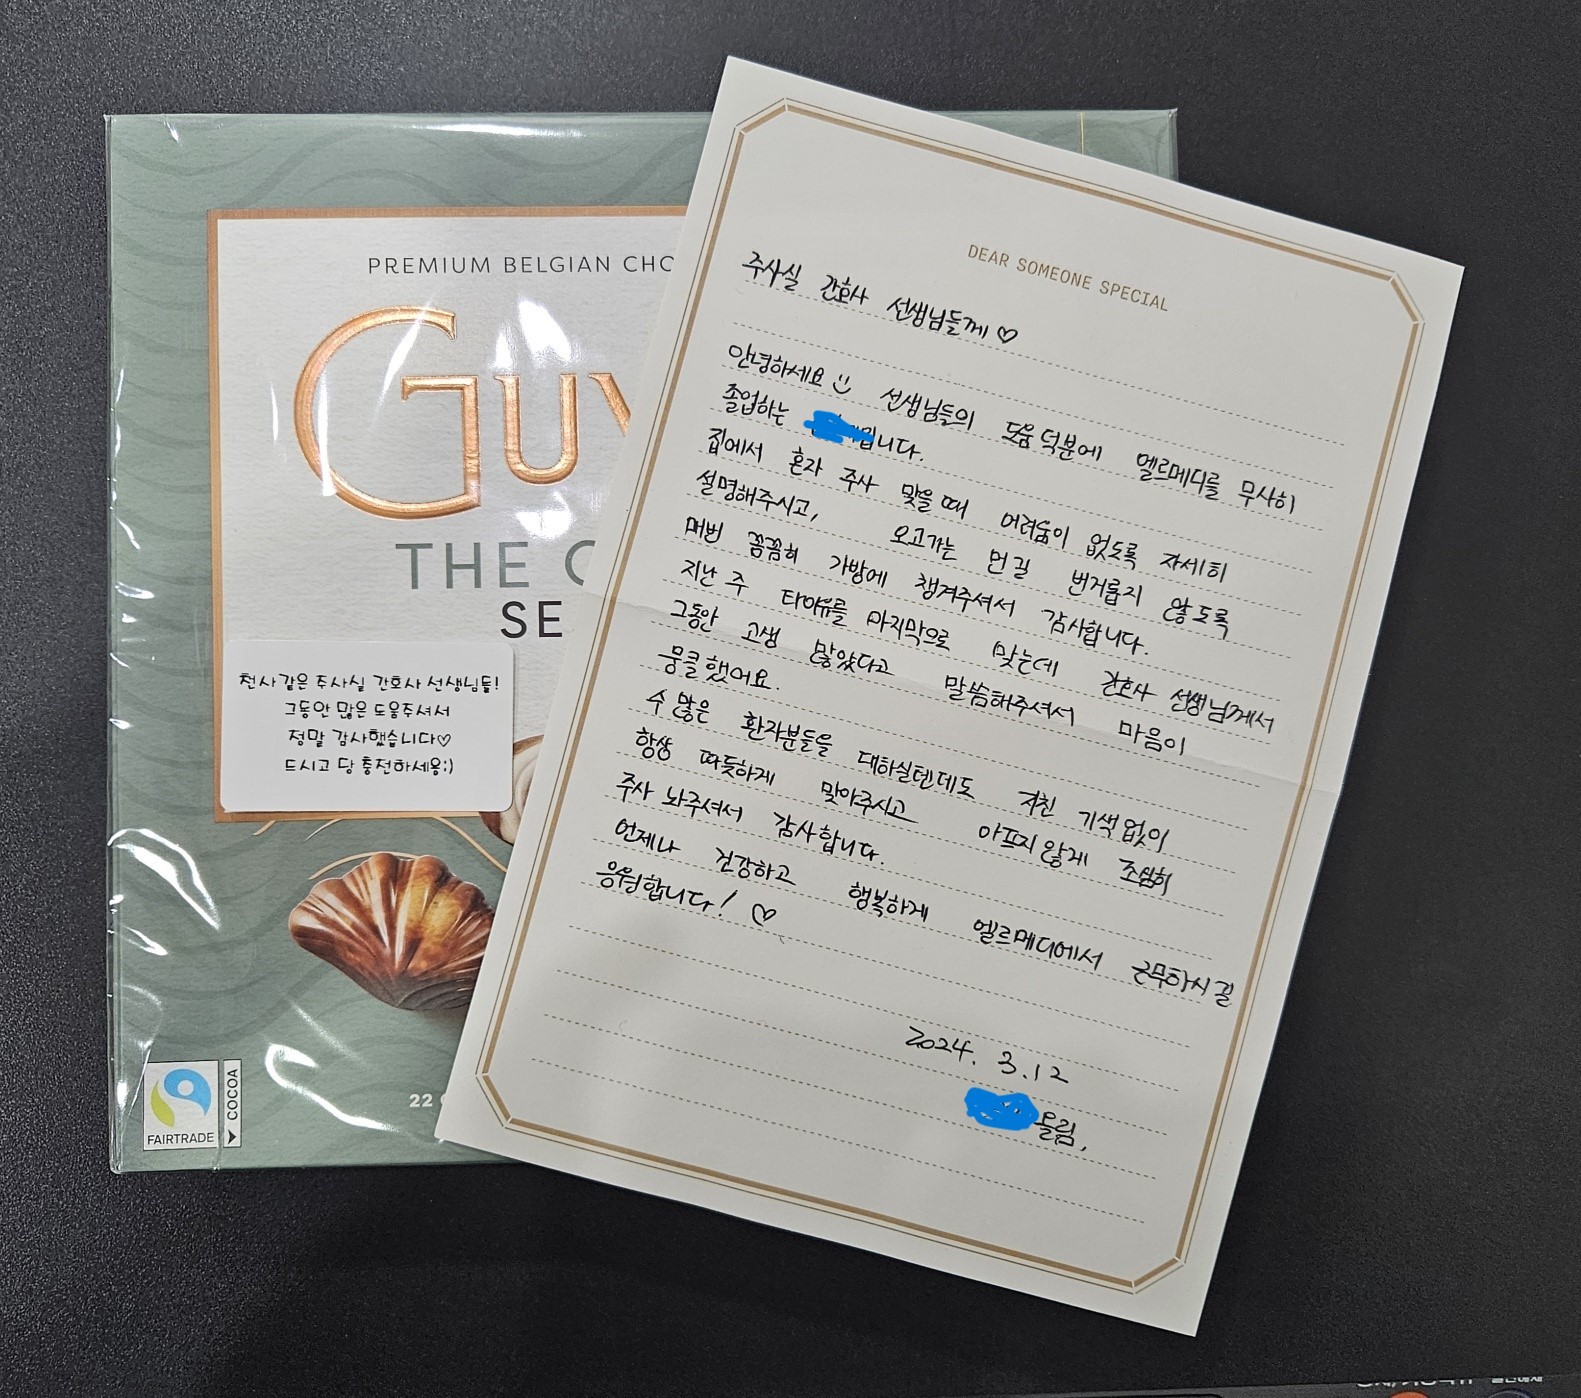 PREMIUM BELGIAN CHO
GUY
THE
SE
천사같은 주사실 간호사 선생님들!
그동안 많은 도움주셔서
정말 감사했습니다♡
드시고 당 충전하세용:)
FAIRTRADE
COCOA
22
DEAR SOMEONE SPECIAL
주사실 간호사 선생님들께 ♡
안녕하세요 선생님들의 도움 덕분에 엘르메디를 무사히
졸업하는 입니다.
집에서 혼자 주사 맞을 때 어려움이 없도록 자세히
설명해주시고, 오고가는 먼길 번거롭지 않도록
매번 꼼꼼히 가방에 챙겨주셔서 감사합니다.
지난 주 타이유를 마지막으로 맞는데 간호사 선생님께서
그동안 고생 많았다고 말씀해주셔서 마음이
뭉클했어요.
수 많은 환자분들을 대하실텐데도 지친 기색없이
항상 따뜻하게 맞아주시고 아프지 않게 조심히
주사 놔주셔서 감사합니다.
언제나 건강하고 행복하게 엘르메디에서 근무하시길
응원합니다! ♡
2024. 3.12
올림,